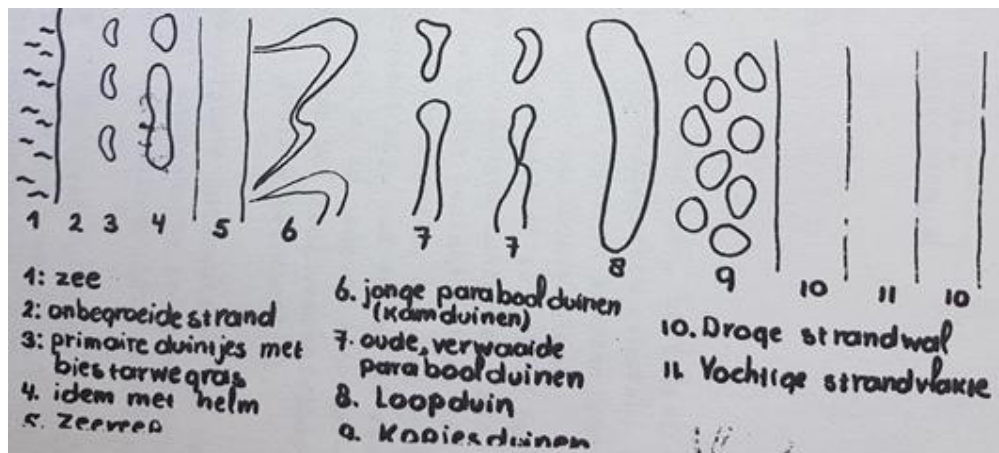 1 2 3 4 5 6 7 7 8 9 10 11 10
1: zee
2: onbegroeide strand
3: primaire duintjes met
biestarwegras
4. idem met helm
5. Zeereep
6. jonge paraboolduinen
(kamduinen)
7. oude, verwaaide
paraboolduinen
8. Loopduin
9. Kopjesduinen
10. Droge strandwal
11. Vochtige strandvlakte